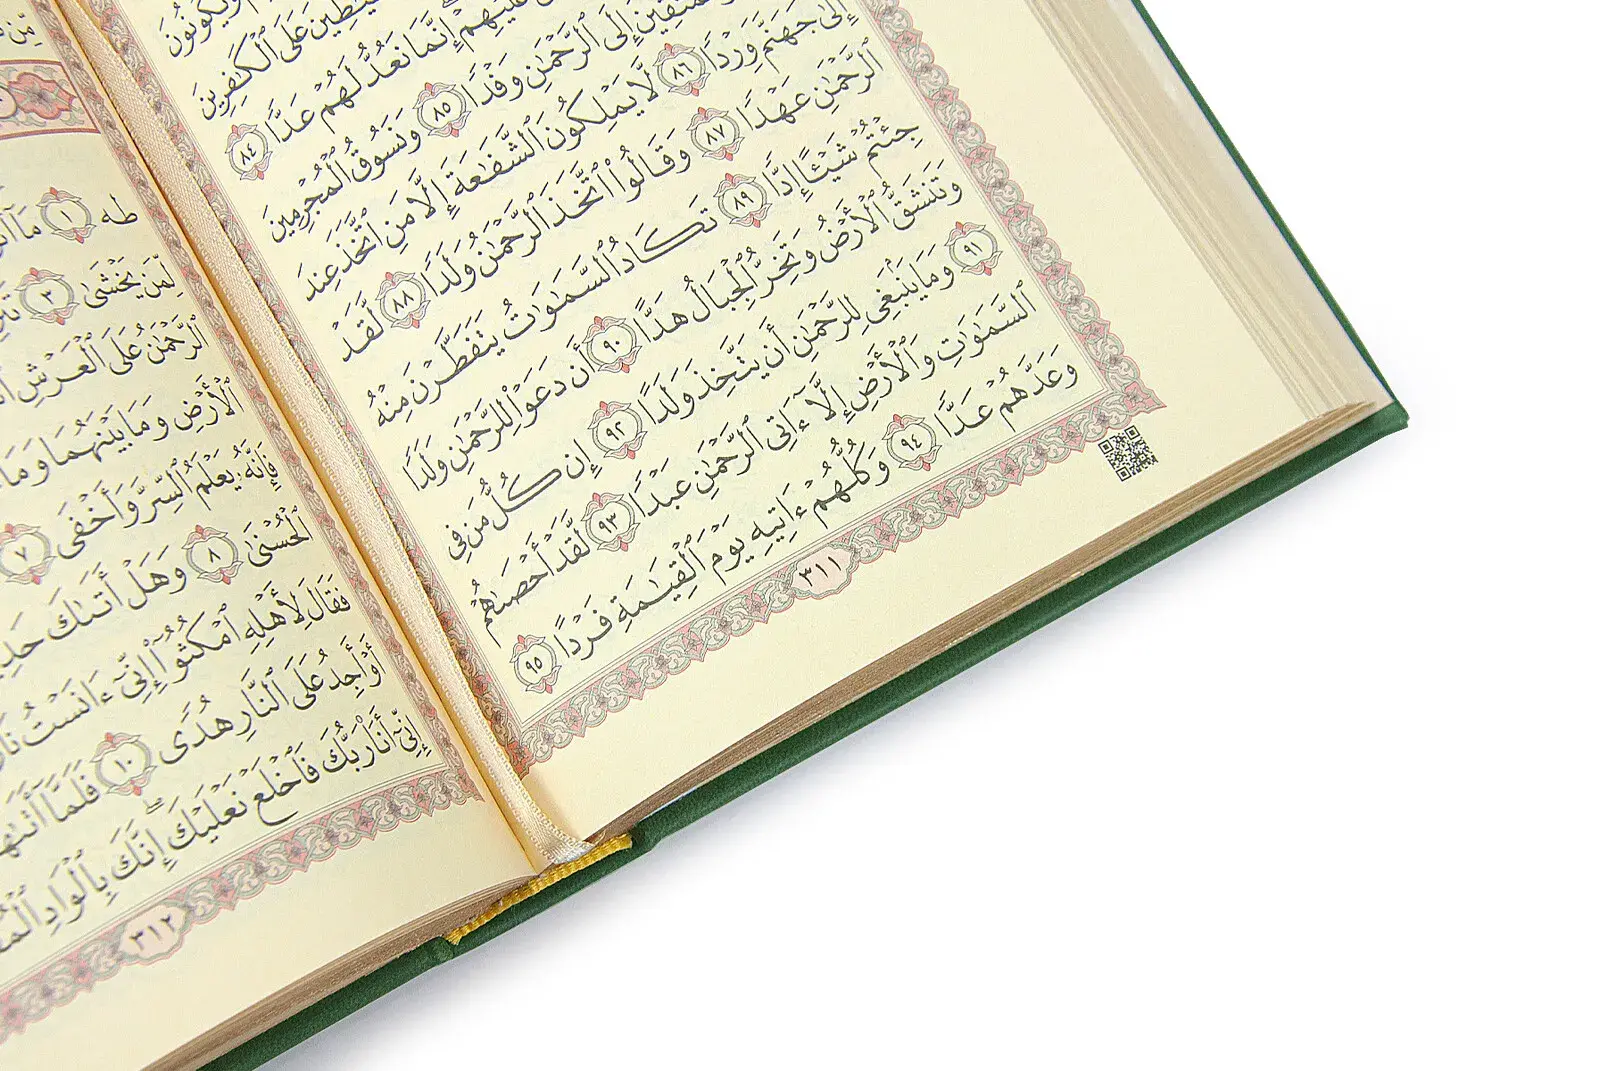 وَيَكُونُونَ
عَلَى ٱلْكَٰفِرِينَ
إِنَّمَا نَعُدُّ لَهُمْ عَدًّا ٨٤
إِلَى ٱلرَّحْمَٰنِ وَفْدًا ٨٥ وَنَسُوقُ ٱلْمُجْرِمِينَ
إِلَىٰ جَهَنَّمَ وِرْدًا ٨٦ لَّا يَمْلِكُونَ ٱلشَّفَٰعَةَ إِلَّا مَنِ ٱتَّخَذَ عِندَ
ٱلرَّحْمَٰنِ عَهْدًا ٨٧ وَقَالُوا۟ ٱتَّخَذَ ٱلرَّحْمَٰنُ وَلَدًا ٨٨ لَّقَدْ
جِئْتُمْ شَيْـًٔا إِدًّا ٨٩ تَكَادُ ٱلسَّمَٰوَٰتُ يَتَفَطَّرْنَ مِنْهُ
وَتَنشَقُّ ٱلْأَرْضُ وَتَخِرُّ ٱلْجِبَالُ هَدًّا ٩٠ أَن دَعَوْا۟ لِلرَّحْمَٰنِ وَلَدًا
٩١ وَمَا يَنۢبَغِى لِلرَّحْمَٰنِ أَن يَتَّخِذَ وَلَدًا ٩٢ إِن كُلُّ مَن فِى
ٱلسَّمَٰوَٰتِ وَٱلْأَرْضِ إِلَّآ ءَاتِى ٱلرَّحْمَٰنِ عَبْدًا ٩٣ لَّقَدْ أَحْصَىٰهُمْ
وَعَدَّهُمْ عَدًّا ٩٤ وَكُلُّهُمْ ءَاتِيهِ يَوْمَ ٱلْقِيَٰمَةِ فَرْدًا ٩٥
٣١١
طه ١ مَآ
لِّمَن يَخْشَىٰ ٣
ٱلرَّحْمَٰنُ عَلَى ٱلْعَرْشِ
ٱلْأَرْضِ وَمَا بَيْنَهُمَا وَمَا
فَإِنَّهُۥ يَعْلَمُ ٱلسِّرَّ وَأَخْفَى ٧
ٱلْحُسْنَىٰ ٨ وَهَلْ أَتَىٰكَ
فَقَالَ لِأَهْلِهِ ٱمْكُثُوٓا۟ إِنِّىٓ ءَانَسْتُ
أَوْ أَجِدُ عَلَى ٱلنَّارِ هُدًى ١٠ فَلَمَّآ
إِنِّىٓ أَنَا۠ رَبُّكَ فَٱخْلَعْ نَعْلَيْكَ إِنَّكَ بِٱلْوَادِ
٣١٢